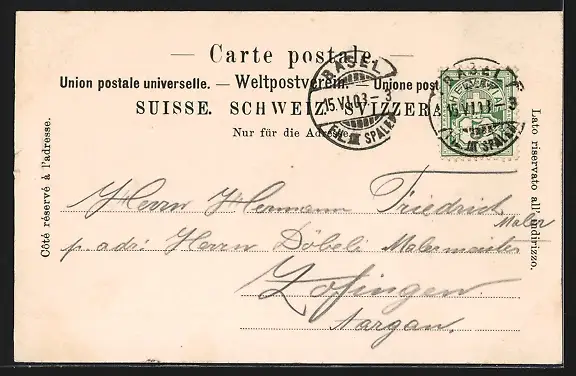 — Carte postale. —
Union postale universelle. — Weltpostverein. — Unione post
SUISSE. SCHWEIZ. SVIZZERA
Nur für die Adresse.
Côté réservé à l'adresse.
Lato riservato all' indirizzo.
BASEL
15.VI.03-3
III SPALEN
BASEL
15.VI.03
3
III SPALEN
Herrn Hermann Friedrich, Maler
p. adr. Herrn Döbeli Malermeister
Zofingen.
Aargau.